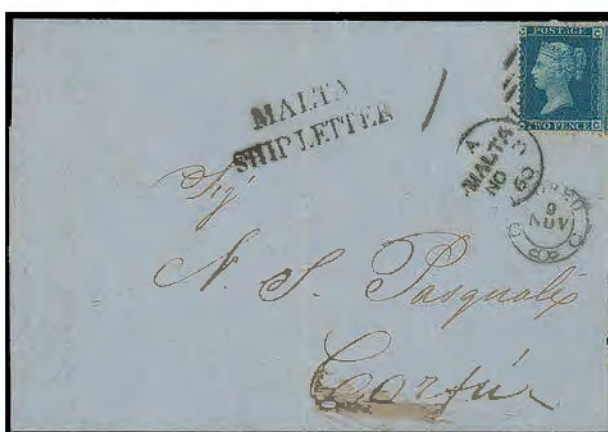 POSTAGE
TWO PENCE
MALTA
SHIP LETTER
A
MALTA
NO 3
60
9
NOV
Sigr
N. S. Pasqualis
Corfu